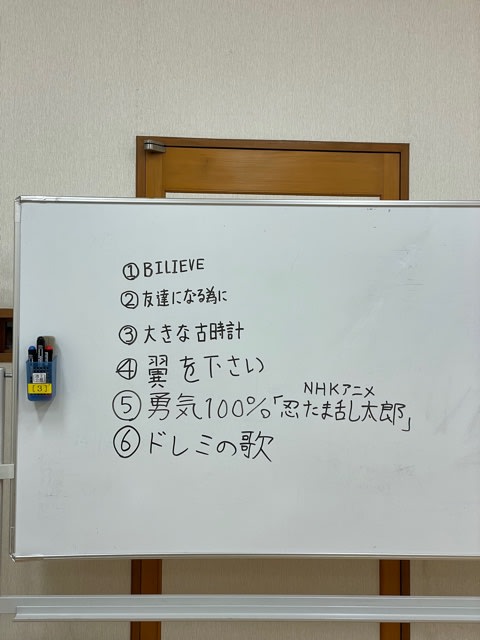 ①BILIEVE
②友達になる為に
③大きな古時計
④翼を下さい
NHKアニメ
⑤勇気100%「忍たま乱太郎」
⑥ドレミの歌
[3]